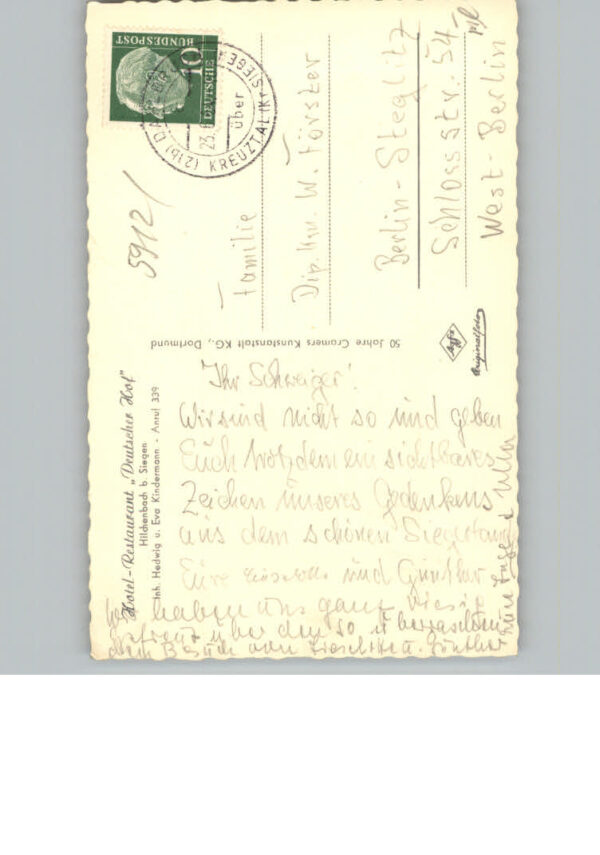 DEUTSCHE
BUNDESPOST
10
(21b)
über
KREUZTAL (KR. SIEGEN)
23.
5912/
Familie
Dip. Kfm. W. Förster
Berlin-Steglitz
Schlossstr. 54
West-Berlin
50 Jahre Cramers Kunstanstalt KG., Dortmund
Agfa
Originalfoto
Hotel-Restaurant „Deutscher Hof"
Hilchenbach b. Siegen
Inh. Hedwig u. Eva Kindermann - Anruf 339
Ihr Schweiger!
Wir sind nicht so und geben
Euch trotzdem ein sichtbares
Zeichen unseres Gedenkens
aus dem schönen Siegerland
Eure und Günther
Wir haben uns ganz riesig
gefreut über den so
Besuch von u. Günther